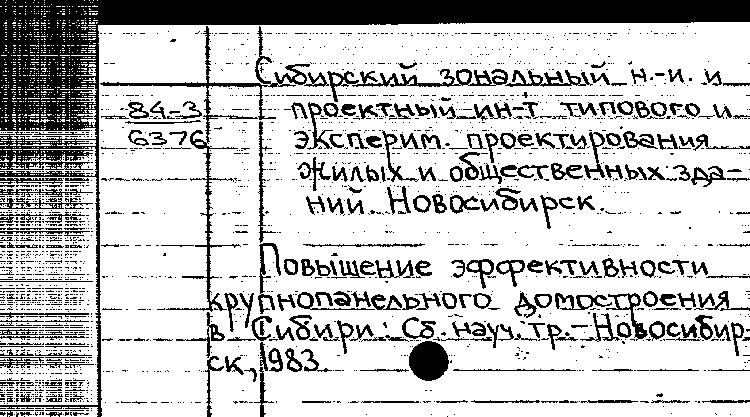 Сибирский зональный н.-и. и
84-3 проектный ин-т типового и
6376 эксперим. проектирования
жилых и общественных зда-
ний. Новосибирск.
Повышение эффективности
крупнопанельного домостроения
в Сибири: Сб. науч. тр.-Новосибир-
ск, 1983.